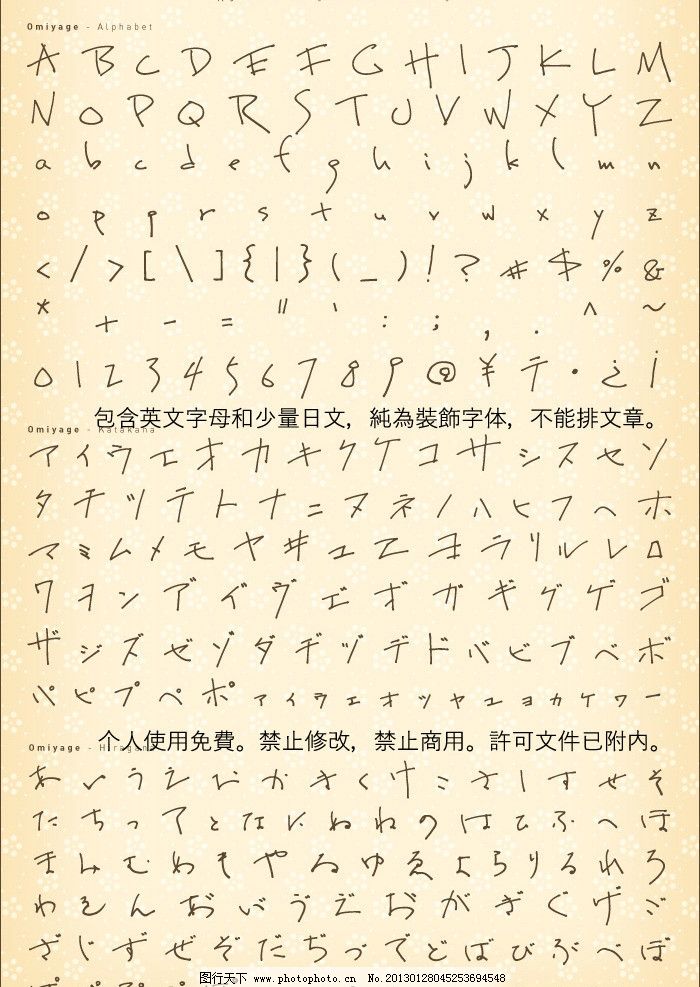 Omiyage - Alphabet
A B C D E F G H I J K L M
N O P Q R S T U V W X Y Z
a b c d e f g h i j k l m n
o p q r s t u v w x y z
< / > [ \ ] { | } ( _ ) ! ? # $ % &
* + - = " ' : ; , . ^ ~
0 1 2 3 4 5 6 7 8 9 @ ¥ テ · ¿ ¡
包含英文字母和少量日文，純為裝飾字体，不能排文章。
Omiyage - Katakana
ア イ ウ エ オ カ キ ク ケ コ サ シ ス セ ソ
タ チ ツ テ ト ナ ニ ヌ ネ ノ ハ ヒ フ ヘ ホ
マ ミ ム メ モ ヤ ヰ ユ ヱ ヨ ラ リ ル レ ロ
ワ ヲ ン ア゙ イ゙ ヴ エ゙ オ゙ ガ ギ グ ゲ ゴ
ザ ジ ズ ゼ ゾ ダ ヂ ヅ デ ド バ ビ ブ ベ ボ
パ ピ プ ペ ポ ァ ィ ゥ ェ ォ ッ ャ ュ ョ ヵ ヶ ヮ ー
个人使用免費。禁止修改，禁止商用。許可文件已附内。
Omiyage - Hiragana
あ い う え お か き く け こ さ し す せ そ
た ち つ て と な に ぬ ね の は ひ ふ へ ほ
ま み む め も や ゐ ゆ ゑ よ ら り る れ ろ
わ を ん あ゙ い゙ ゔ え゙ お゙ が ぎ ぐ げ ご
ざ じ ず ぜ ぞ だ ぢ づ で ど ば び ぶ べ ぼ
图行天下 www.photophoto.cn No.20130128045253694548